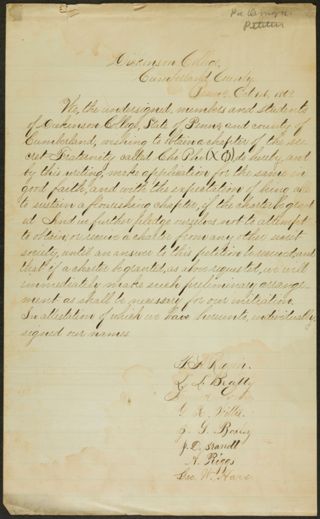 Petition
Dickinson College,
Cumberland County
We, the undersigned, members and students
of Dickinson College, State of Penna, and county of
Cumberland, wishing to obtain a chapter of the se-
cret Fraternity called Chi Phi (Χ Φ) do hereby, and
by this writing, make application for the same in
good faith, and with the expectation of being able
to sustain a flourishing chapter, if the charter be grant-
ed. And we further pledge ourselves not to attempt
to obtain, or receive a charter from any other secret
society, until an answer to this petition be received; and
that if a charter be granted, as above requested, we will
immediately make such preliminary arrange-
ment as shall be necessary for our initiation.
In attestation of which we have hereunto, individually
signed our names.
L. L. Beatty
A. Riggs
Geo. W.